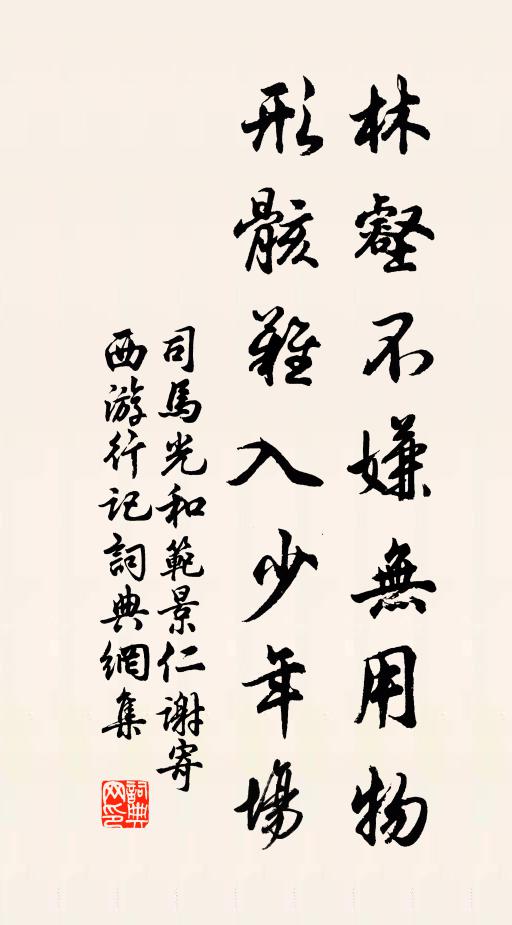 林壑不嫌無用物
形骸難入少年場
司馬光和範景仁謝寄
西游行記詞典網集
詞典网印